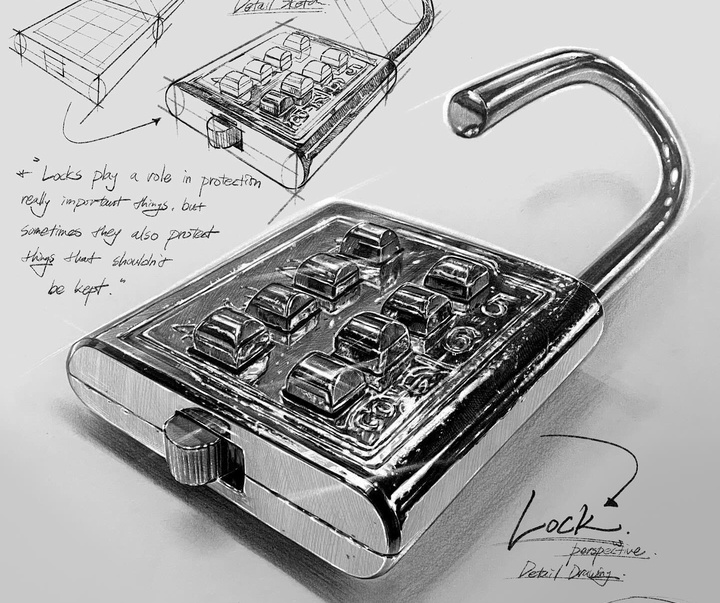 Detail Sketch
* "Locks play a role in protection
really important things, but
sometimes they also protect
things that shouldn't
be kept."
5
6
Lock.
perspective.
Detail Drawing.